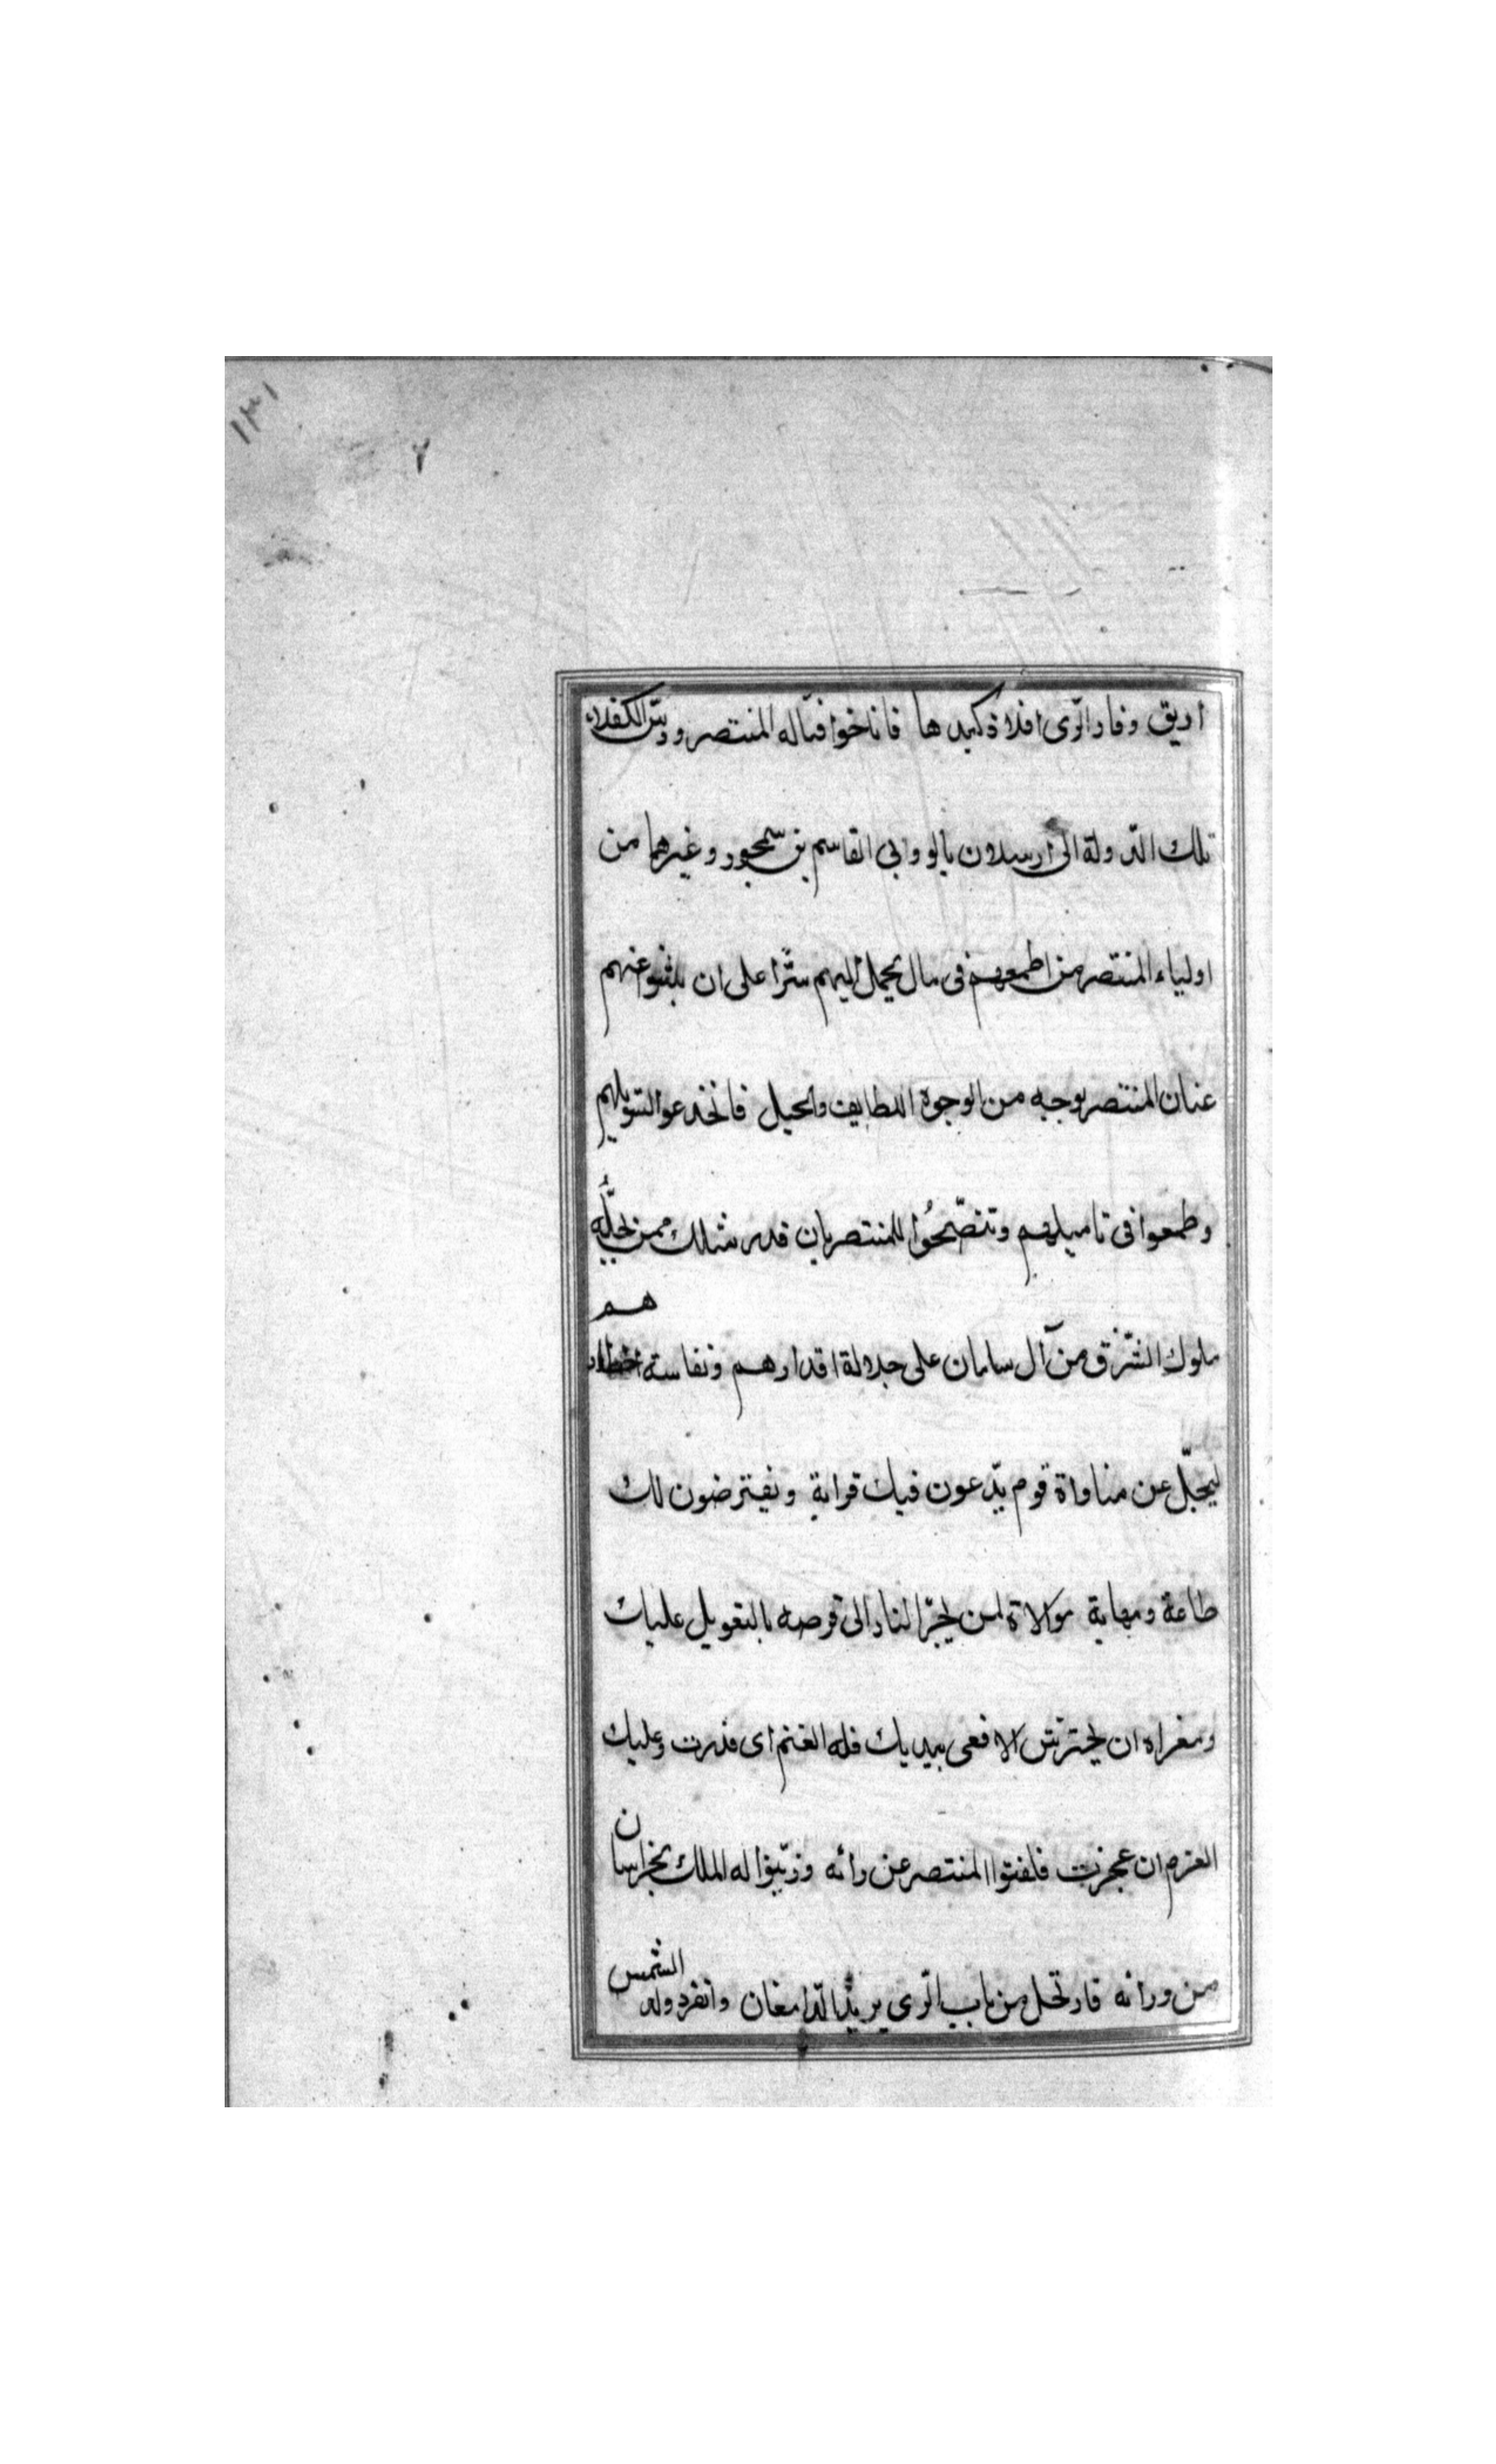 ١٣١
٢
اديق وفاد الرّى افلاذ كبدها فاناخوا قبالة المنتصر ودسّ الكفلاء
تلك الدّولة الى ارسلان بالو وابى القاسم بن سمجور وغيرهما من
اولياء المنتصر من اطمعهم فى مال يحمل اليهم سرّا على ان يلفتوا عنهم
عنان المنتصر بوجه من الوجوه اللطايف والحيل فانخدعوا لتسويلهم
وطمعوا فى تاميلهم وتنصّحُوا للمنتصر بان قدر مثلك ممن يجلّه
ملوك الشّرق من آل سامان على جلالة اقدارهم ونفاسة اخطارهم
ليجلّ عن مناواة قوم يدّعون فيك قرابة ويفترضون لك
طاعة ومهابة موالاة لمن يجرّ النار الى قرصه بالتعويل عليك
ومغزاه ان يحترش الافعى بيديك فله الغنم اى قدرت وعليك
الغرم ان عجزت فلفتوا المنتصر عن رائه وزيّنوا له الملك بخراسان
من ورائه فارتحل من باب الرّى يريد الدّامغان وانفرد ولد الشمس